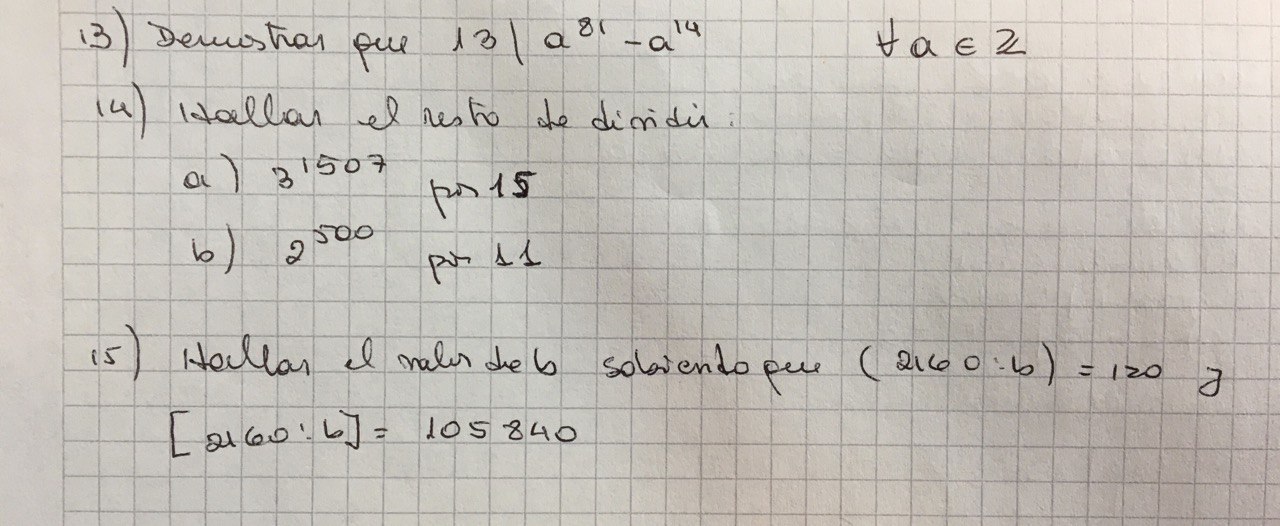 13) Demostrar que 13 | a⁸¹ - a¹⁴ ∀ a ∈ Z
14) Hallar el resto de dividir:
a) 3¹⁵⁰⁷ por 15
b) 2⁵⁰⁰ por 11
15) Hallar el valor de b sabiendo que (2160:b) = 120 y
[2160:b] = 105840